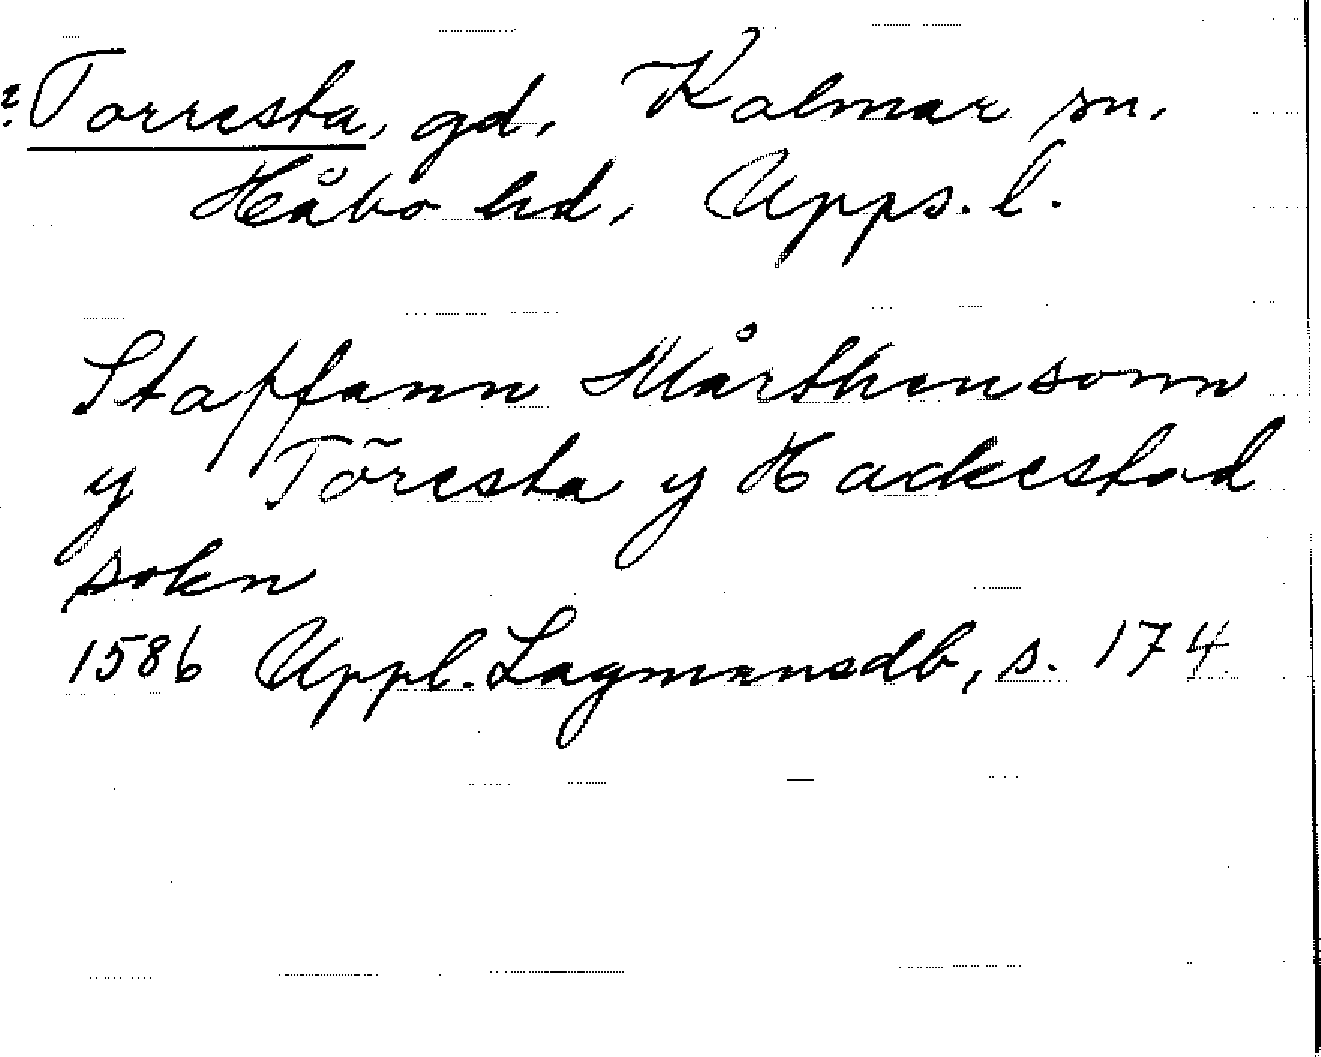 ? Torresta, gd, Kalmar sn.
Håbo hd, Upps. l.
Staffann Mårthensonn
y Töresta y Hackestad
sokn
1586 Uppl. Lagmansdb, s. 174